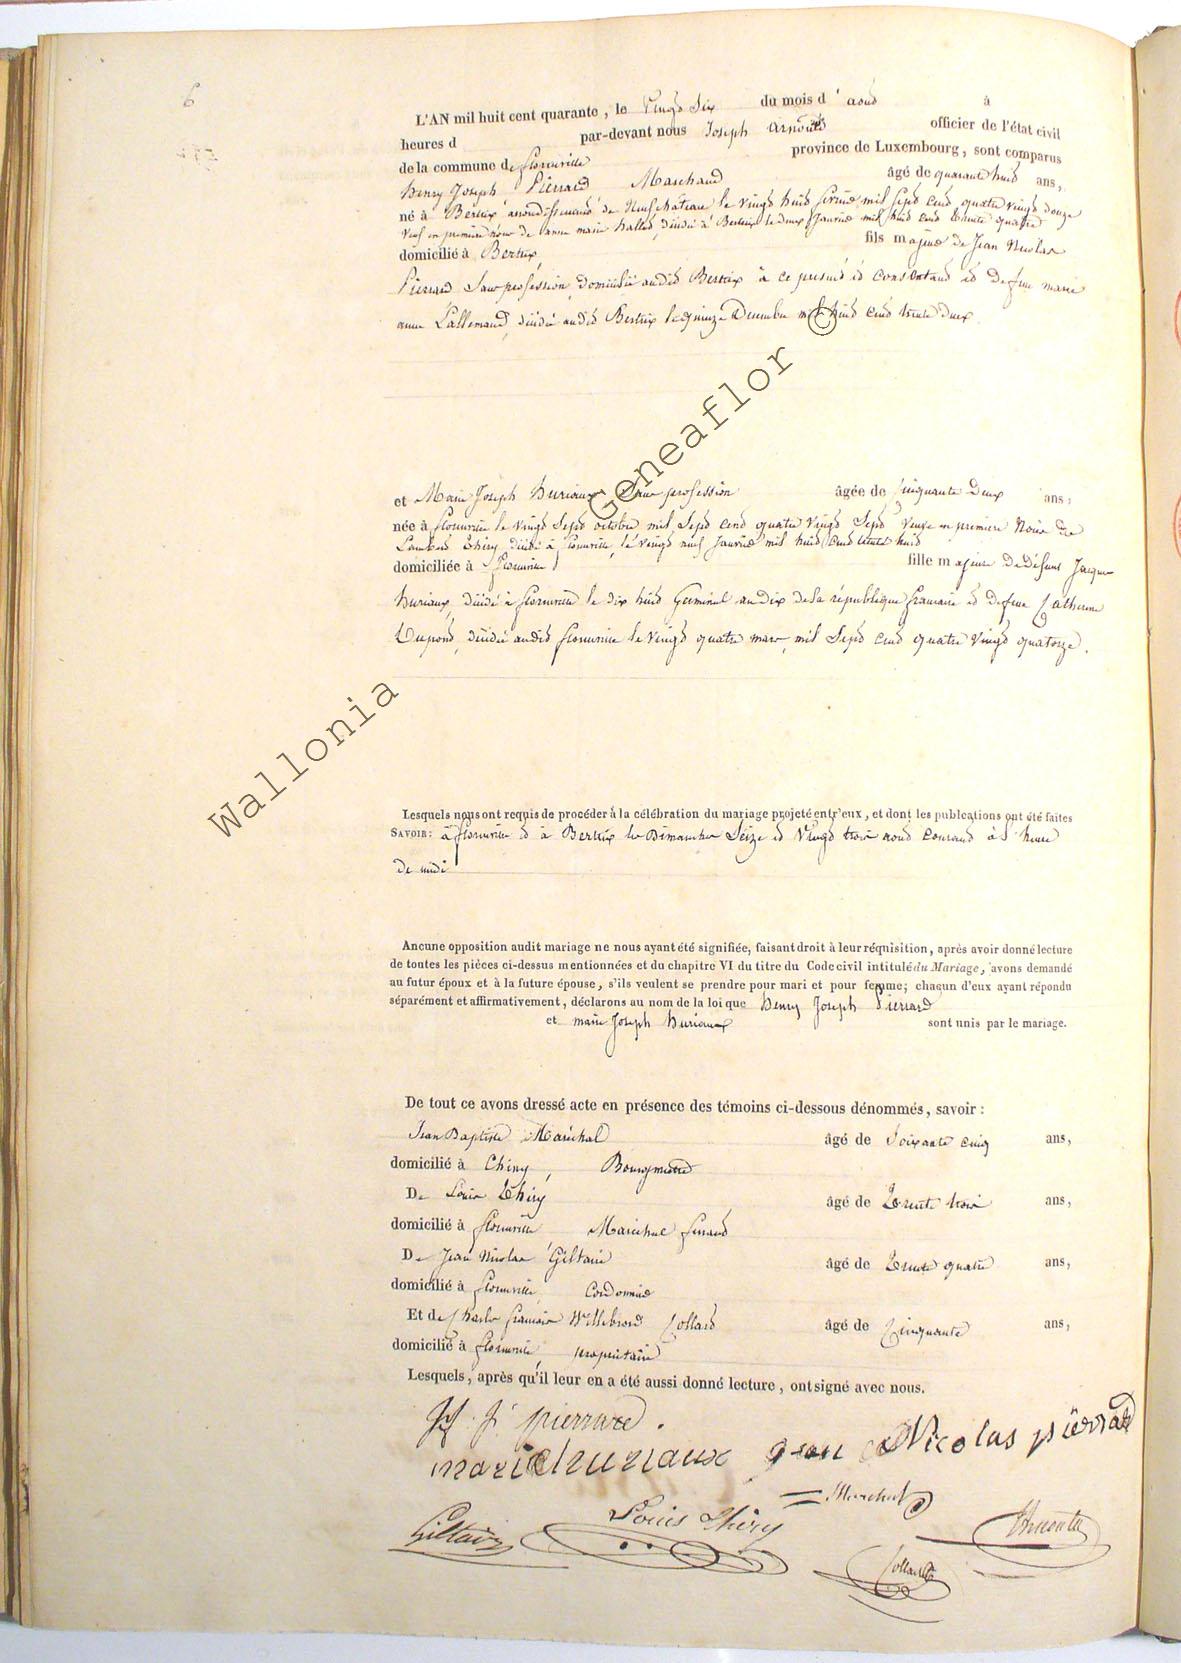 6
L'AN mil huit cent quarante, le Vingt Six du mois d'aout à
heures d par-devant nous Joseph Arnould officier de l'état civil
de la commune de florenville province de Luxembourg, sont comparus
henry Joseph Pierrard Marchand âgé de quarante huit ans,
né à Bertrix arrondissement de Neufchateau le vingt huit fevrier mil sept cent quatre vingt douze
Veuf en premiere noce de anne marie hallet, décédée à Bertrix le deux Janvier mil huit cent trente quatre
domicilié à Bertrix, fils majeur de Jean Nicolas
Pierrard Sans profession, domicilié audit Bertrix à ce présent et consentant et de feue marie
anne Lallemand, décédée audit Bertrix le quinze Décembre mil huit cent trente deux.
et Marie Joseph huriaux Sans profession âgée de Cinquante Deux ans;
née à florenville le vingt Sept octobre mil Sept cent quatre vingt Sept Veuve en premiere Noce de
Lambert thiry décédé à florenville, le vingt neuf Janvier mil huit cent trente huit
domiciliée à florenville fille majeure de défunt Jacques
huriaux, décédé à florenville le dix huit Germinal an dix de la république française et de feue Catherine
Dupont, décédée audit florenville le vingt quatre mars, mil Sept cent quatre vingt quatorze.
Lesquels nous ont requis de procéder à la célébration du mariage projeté entr'eux, et dont les publications ont été faites
SAVOIR: à florenville et à Bertrix les Dimanches Seize et Vingt trois aout courant à l'heure
de midi
Aucune opposition audit mariage ne nous ayant été signifiée, faisant droit à leur réquisition, après avoir donné lecture
de toutes les pièces ci-dessus mentionnées et du chapitre VI du titre du Code civil intitulé du Mariage, avons demandé
au futur époux et à la future épouse, s'ils veulent se prendre pour mari et pour femme; chacun d'eux ayant répondu
séparément et affirmativement, déclarons au nom de la loi que henry Joseph Pierrard
et marie Joseph huriaux sont unis par le mariage.
De tout ce avons dressé acte en présence des témoins ci-dessous dénommés, savoir:
Jean Baptiste Maréchal âgé de Soixante cinq ans,
domicilié à Chiny, Bourgmestre
De Louis thiry âgé de trente trois ans,
domicilié à florenville Maréchal ferrant
De Jean Nicolas Giltaire âgé de trente quatre ans,
domicilié à florenville, Cordonnier
Et de Charles francois Willebrord Collard âgé de Cinquante ans,
domicilié à florenville propriétaire
Lesquels, après qu'il leur en a été aussi donné lecture, ont signé avec nous.
pierrard.
marie huriaux Jean Nicolas pierrard
Marechal
Giltaire Louis thiry
Collard
Wallonia Geneaflor ©